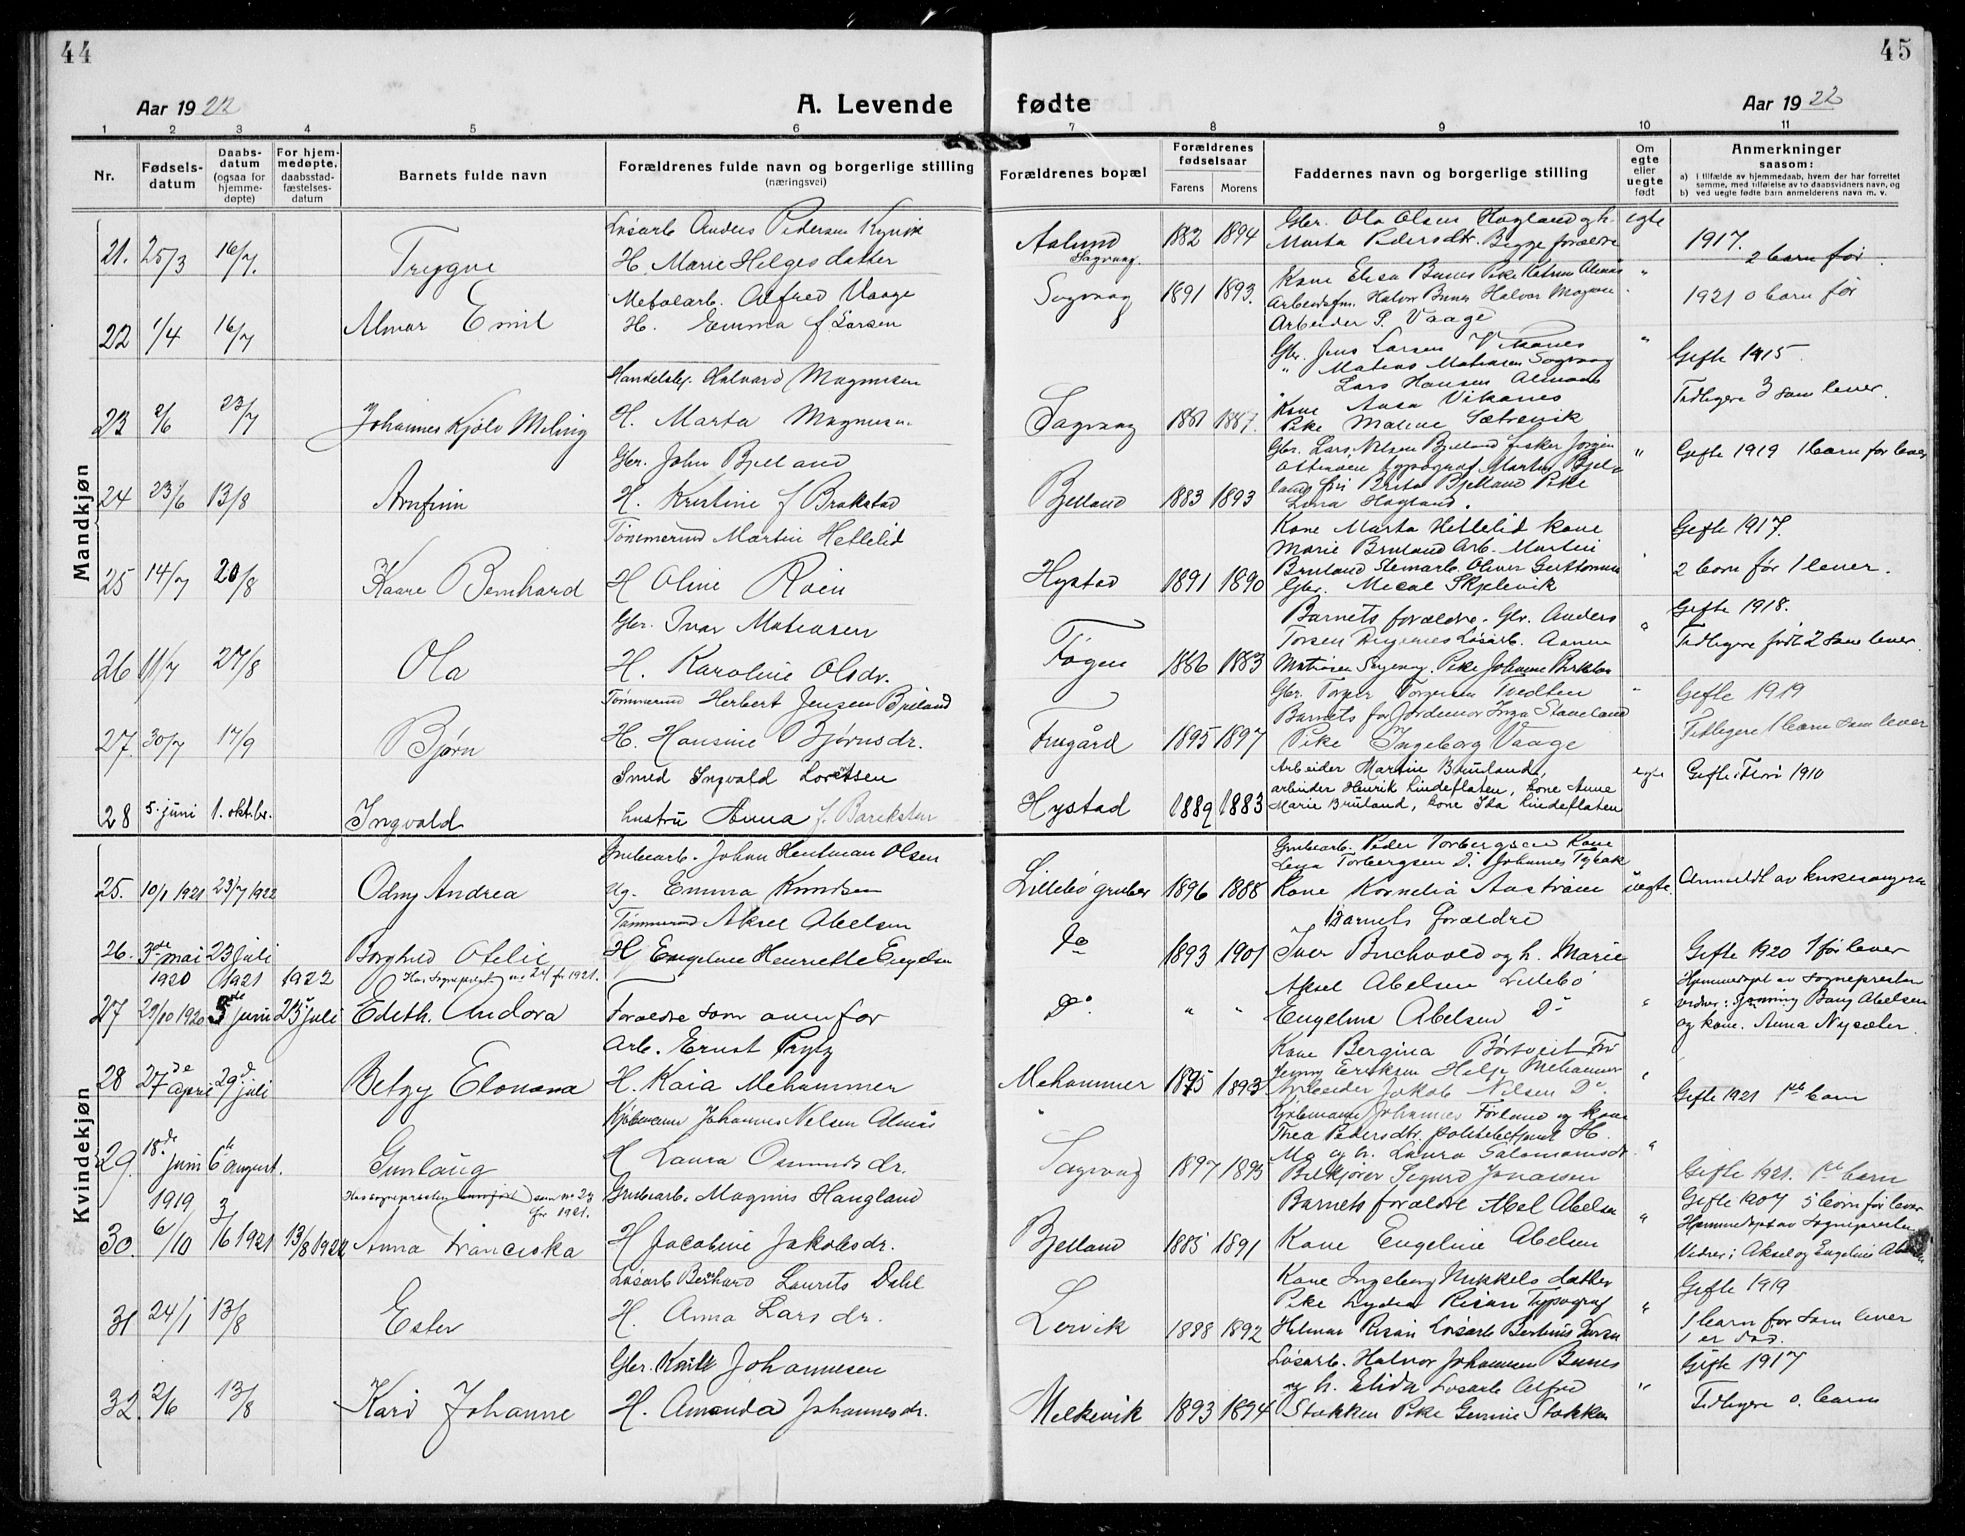 44
Aar 1922
A. Levende
1 2 3 4 5 6
Nr.
Fødsels-
datum
Daabs-
datum
(ogsaa for
hjemme-
døpte)
For hjem-
medøpte,
daabsstad-
fæstelses-
datum
Barnets fulde navn
Forældrenes fulde navn og borgerlige stilling
(næringsvei)
Mandkjøn
Løsarb Anders Pedersen
21. 25/3 16/7. Trygve H. Marie Helges datter
Metalarb. Alfred Vaage
22 1/4 16/7 Almar Emil H. Emma f Larsen
Halvard Magnusen
23 2/6 23/7 Johannes Kjølv Meling H. Marta
Gbr. John Bjelland
24 23/6 13/8 Arnfinn H. Kristine f Brakstad
Martin Hettelid
25 14/7 20/8 Kaare Bernhard H Oline Røen
Gbr. Ivar Matiasen
26 11/7 27/8 Ola H. Karoline Olsdr.
Herbert Jensen
27. 30/7 17/9 Bjørn H. Hansine Bjørnsdr.
Smed Ingvald Lorentsen
28 5. juni 1. oktbr. Ingvald hustru Anna f.
Kvindekjøn
Grubearb. Johan Olsen
25. 10/1 1921 23/7 1922 Odny Andrea Ug. Emma Knudsen
Aksel Abelsen
26. 3die mai 23 juli Borghild Otelie H Engeline Henriette
1920 1921 1922 no 24 for 1921.
27 29/10 1920 5te juni 25 juli Edith. Andora Forældre som ovenfor
Arb. Ernst
28 27de april 29d juli Betzy H. Kaia Mehammer
Johannes Nilsen Almås
29. 18de juni 6te august. Gunlaug H Laura Osmundsdr.
1919 som no 23
for 1921.
Grubearb. Magnus Haugland
30. 6/10 3/6 1921 13/8 1922 Anna Franciska H Jacobine Jakobsdr.
Løsarb Bernhard Laurits Dahl
31 24/1 13/8 Ester H. Anna Larsdr.
Gbr. Knut Johannesen
32. 2/6 13/8 Kari Johanne H. Amanda Johannesdr.
45
fødte
Aar 1922
7 8 9 10 11
Forældrenes bopæl
Forældrenes
fødselsaar
Farens Morens
Faddernes navn og borgerlige stilling
Om
egte
eller
uegte
født
Anmerkninger
saasom:
a) i tilfælde av hjemmedaab, hvem der har forrettet
samme, med tilføielse av to daabsvidners navn, og
b) ved uegte fødte barn anmelderens navn m. v.
Gbr. Ola Olsen Hogland og h. egte
Aslund 1882 1894 Marta Pedersdtr. Begge forældre 1917.
Sagvaag. 2 barn før.
Kone Elisa
Sagvaag 1891 1893. Halvor 1921 0 barn før
Arbeider P. Vaage
Gbr. Jens Larsen Vikanes "
" Matias Matiasen Sagvaag Gifte 1915.
Lars Hansen Almaas Tidligere 3 som lever.
Sagvaag 1881 1887. Kone Vikanes
Pike Malene Sætrevik
Gbr. Lars Nilsen Bjelland fisker Jørgen " Gifte 1919 1 barn før lever
typograf Martin
Bjelland 1883 1893 Brita Bjelland Pike
Lina Hogland.
Kone Marta Hettelid kone Gifte 1917.
Marie Bruland Arb. Martin
Hystad 1891 1890 Bruland Stenarb. Oliver 2 barn før 1 lever.
Gbr. Mical Skjelevik
Barnets forældre. Gbr. Anders " Gifte 1918.
Tidligere født 2 som lever.
1886 1883 Pike Johanne
Gbr. Torger Torgersen Tvedten " Gifte 1919
Barnets far Jordemor Inga Stavland Tidligere 1 barn som lever
1895 1897 Pike Ingeborg Vaage
Arbeider Martin Bruland, egte Gifte 1910
Hystad 1889 1883 arbeider Henrik Lindeflaten, kone Anna
Marie Bruland, kone Ida Lindeflaten
Grubearb. Peder Torbergsen Kone
Lena Torbergsen Do Johannes
Lillebø gruber 1896 1888 Kone Kornelia uegte. Anmeldt av kirkesangeren
Barnets forældre
Do 1893 1901 Iver Buchvold og h. Marie Gifte 1920 1 før lever
Aksel Abelsen Lillebø Hjemmedøpt av Sognepresten
Do. " " Engeline Abelsen Do " Bang Abelsen
og kone. Anna Nysæter.
Kone Bergina Børtveit
Mehammer 1895 1893 Jenny Eriksen Helje Mehammer "
Arbeider Jakob Nilsen Do Gifte 1921 1ste barn
Johannes Førland og kone
Thea Pedersdtr. politibetjent H. "
Sagvaag 1897 1895 og h. Laura Salomonsdr.
Sigurd Jonassen Gifte 1921. 1ste barn
Barnets forældre Abelsen " Gifte 1907 5 børn før lever
Hjemmedøpt av Sognepresten
Bjelland 1885 1891 Kone Engeline Abelsen Vidner: Aksel og Engeline
Kone Ingeborg Mikkelsdatter Gifte 1919
Pike Lydia Risøn Typograf " 1 barn før som lever
Lervik 1888 1892 Hilmar Løsarb 1 er død.
Løsarb. Halvor Johannesen Gifte 1917
og h. Elida Løsarb Alfred "
Melkevik 1893 1894 Stokken Pike Stokken Tidligere 0. barn